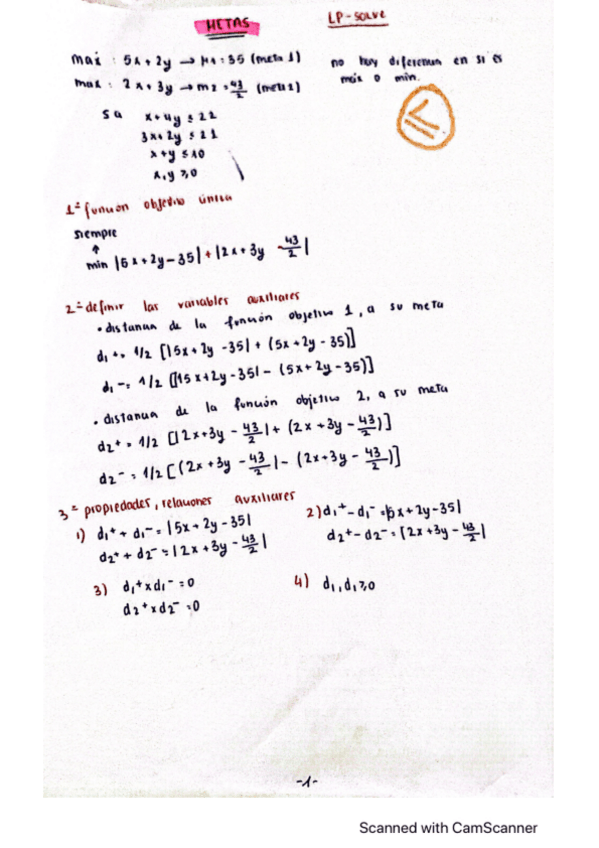 METAS
LP-SOLVE
max : 5x + 2y → M1 = 35 (meta 1)
max : 2x + 3y → m2 = 43/2 (meta 2)
no hay diferencia en si es
max o min.
≤
s a x + 4y ≤ 22
3x + 2y ≤ 21
x + y ≤ 10
x, y ≥ 0
1º función objetivo única
siempre
↑
min |5x + 2y - 35| + |2x + 3y - 43/2|
2º definir las variables auxiliares
• distancia de la función objetivo 1, a su meta
d1+ = 1/2 [|5x + 2y - 35| + (5x + 2y - 35)]
d1- = 1/2 [|5x + 2y - 35| - (5x + 2y - 35)]
• distancia de la función objetivo 2, a su meta
d2+ = 1/2 [|2x + 3y - 43/2| + (2x + 3y - 43/2)]
d2- = 1/2 [(2x + 3y - 43/2| - (2x + 3y - 43/2)]
3º propiedades, relaciones auxiliares
1) d1+ + d1- = |5x + 2y - 35|
d2+ + d2- = |2x + 3y - 43/2|
2) d1+ - d1- = |5x + 2y - 35|
d2+ - d2- = |2x + 3y - 43/2|
3) d1+ x d1- = 0
d2+ x d2- = 0
4) d1, d1 ≥ 0
-1-
Scanned with CamScanner